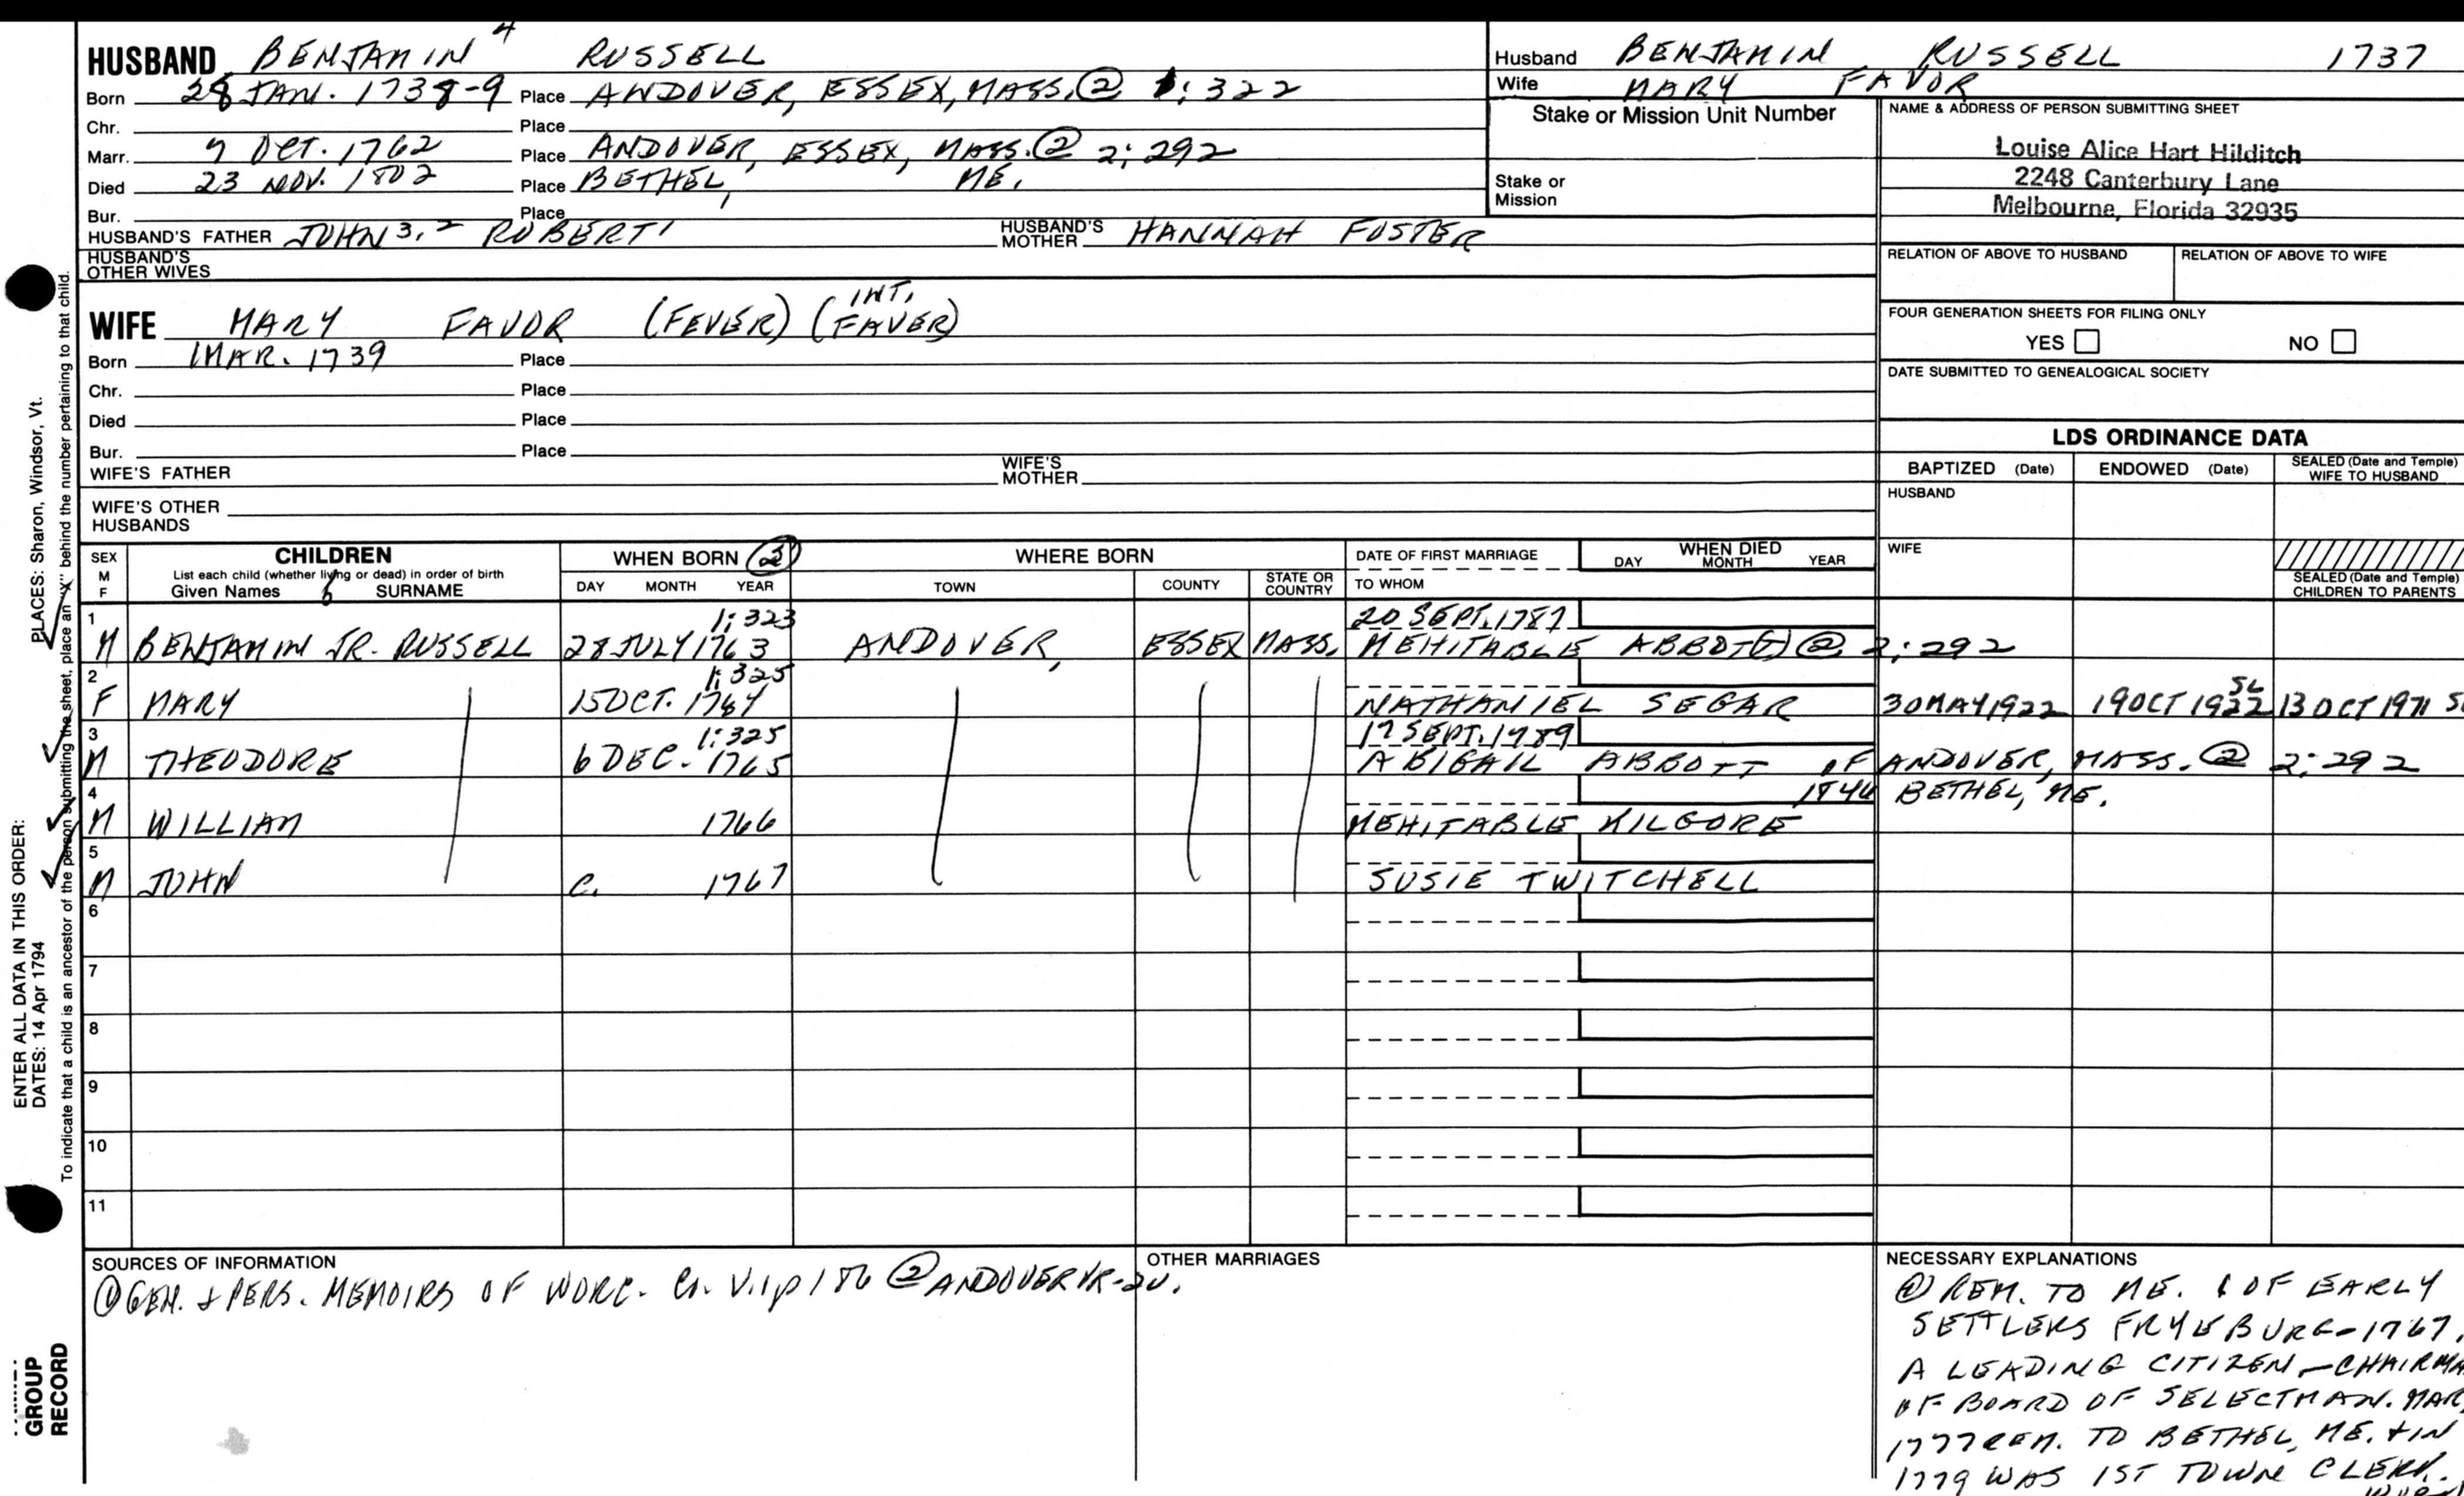 HUSBAND BENJAMIN 4 RUSSELL
Born 28 JAN. 1738-9 Place ANDOVER, ESSEX, MASS. @ 1:322
Chr. Place
Marr. 7 OCT. 1762 Place ANDOVER, ESSEX, MASS. @ 2:292
Died 23 NOV. 1802 Place BETHEL, ME.
Bur. Place
HUSBAND'S FATHER JOHN 3, 2 ROBERT 1 HUSBAND'S MOTHER HANNAH FOSTER
HUSBAND'S OTHER WIVES
WIFE MARY FAVOR (FEVER) (INT. FAVER)
Born 1 MAR. 1739 Place
Chr. Place
Died Place
Bur. Place
WIFE'S FATHER WIFE'S MOTHER
WIFE'S OTHER HUSBANDS
Husband BENJAMIN RUSSELL 1737
Wife MARY FAVOR
Stake or Mission Unit Number
Stake or Mission
NAME & ADDRESS OF PERSON SUBMITTING SHEET
Louise Alice Hart Hilditch
2248 Canterbury Lane
Melbourne, Florida 32935
RELATION OF ABOVE TO HUSBAND RELATION OF ABOVE TO WIFE
FOUR GENERATION SHEETS FOR FILING ONLY
YES NO
DATE SUBMITTED TO GENEALOGICAL SOCIETY
LDS ORDINANCE DATA
BAPTIZED (Date) ENDOWED (Date) SEALED (Date and Temple) WIFE TO HUSBAND
HUSBAND
WIFE
SEALED (Date and Temple) CHILDREN TO PARENTS
SEX M F CHILDREN WHEN BORN 2 WHERE BORN DATE OF FIRST MARRIAGE WHEN DIED
List each child (whether living or dead) in order of birth
Given Names SURNAME DAY MONTH YEAR TOWN COUNTY STATE OR COUNTRY TO WHOM DAY MONTH YEAR
1 1:323 20 SEPT. 1787
M BENJAMIN JR. RUSSELL 28 JULY 1763 ANDOVER, ESSEX MASS. MEHITABLE ABBOT(T) @ 2:292
2 1:325
F MARY 15 OCT. 1764 NATHANIEL SEGAR 30 MAY 1922 19 OCT 1922 SL 13 OCT 1971 SL
3 1:325 17 SEPT. 1789
M THEODORE 6 DEC. 1765 ABIGAIL ABBOTT OF ANDOVER, MASS. @ 2:292
4 1844 BETHEL, ME.
M WILLIAM 1766 MEHITABLE KILGORE
5
M JOHN C. 1767 SUSIE TWITCHELL
6
7
8
9
10
11
SOURCES OF INFORMATION
① GEN. & PERS. MEMOIRS OF WORC. Co. V.1 p 186 ② ANDOVER VR-2V.
OTHER MARRIAGES
NECESSARY EXPLANATIONS
REM. TO ME. 1 OF EARLY
SETTLERS FRYEBURG-1767.
A LEADING CITIZEN - CHAIRMA
OF BOARD OF SELECTMAN. MAR.
1777 REM. TO BETHEL, ME. & IN
1779 WAS 1ST TOWN CLERK.
ENTER ALL DATA IN THIS ORDER:
DATES: 14 Apr 1794 PLACES: Sharon, Windsor, Vt.
To indicate that a child is an ancestor of the person submitting the sheet, place an "X" behind the number pertaining to that child.
GROUP
RECORD